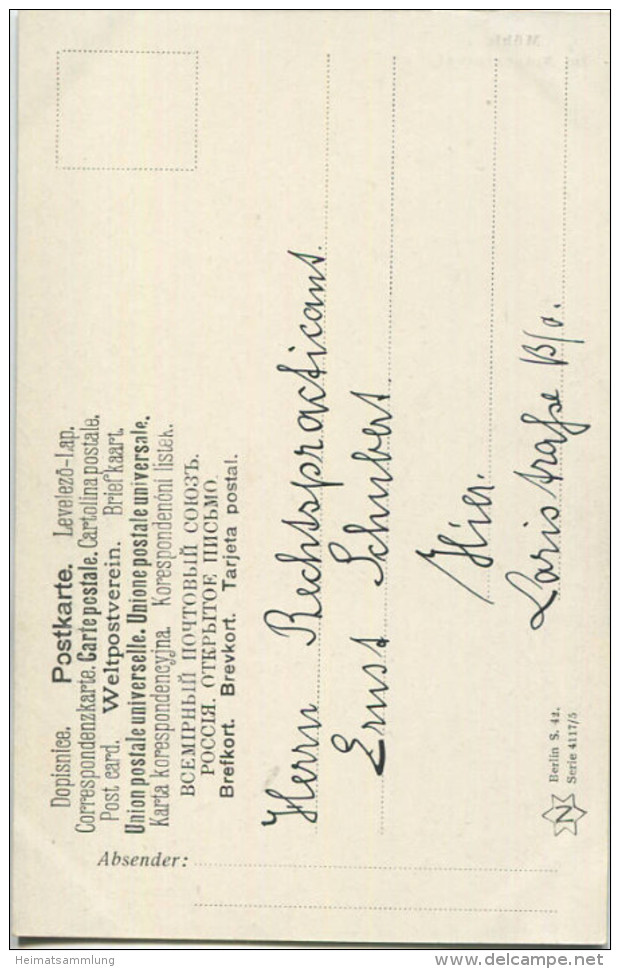 Dopisnice. Postkarte. Levelező-Lap.
Correspondenzkarte. Carte postale. Cartolina postale.
Post card. Weltpostverein. Briefkaart.
Union postale universelle. Unione postale universale.
Karta korespondencyjna. Korespondenčni listek.
ВСЕМІРНЫЙ ПОЧТОВЫЙ СОЮЗЪ.
РОССІЯ. ОТКРЫТОЕ ПИСЬМО.
Brefkort. Brevkort. Tarjeta postal.
Herrn Rechtspracticant
Ernst Schubert
Hier.
Absender:
N
Berlin S. 42.
Serie 4117/5
Heimatsammlung
www.delcampe.net